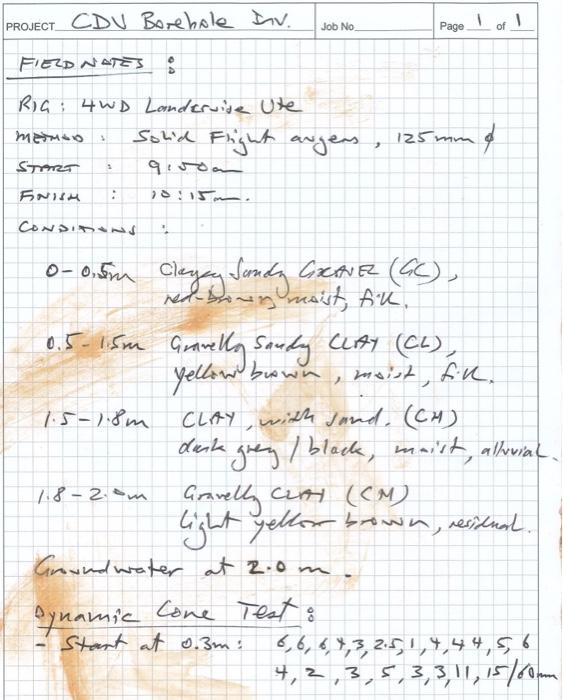 PROJECT CDV Borehole Inv. Job No Page 1 of 1
FIELD NOTES :
RIG : 4WD Landcruise Ute
METHOD : Solid Flight augers, 125mm ϕ
START : 9:50am
FINISH : 10:15am.
CONDITIONS :
0-0.5m Clayey Sandy GRAVEL (GC),
red-brown, moist, fill.
0.5-1.5m Gravelly Sandy CLAY (CL),
yellow brown, moist, fill.
1.5-1.8m CLAY, with sand. (CH)
dark grey / black, moist, alluvial.
1.8-2.0m Gravelly CLAY (CH)
light yellow brown, residual.
Groundwater at 2.0 m.
Dynamic Cone Test :
- Start at 0.3m : 6,6,6,4,3,2.5,1,4,4,4,5,6
4,2,3,5,3,3,11,15/60mm